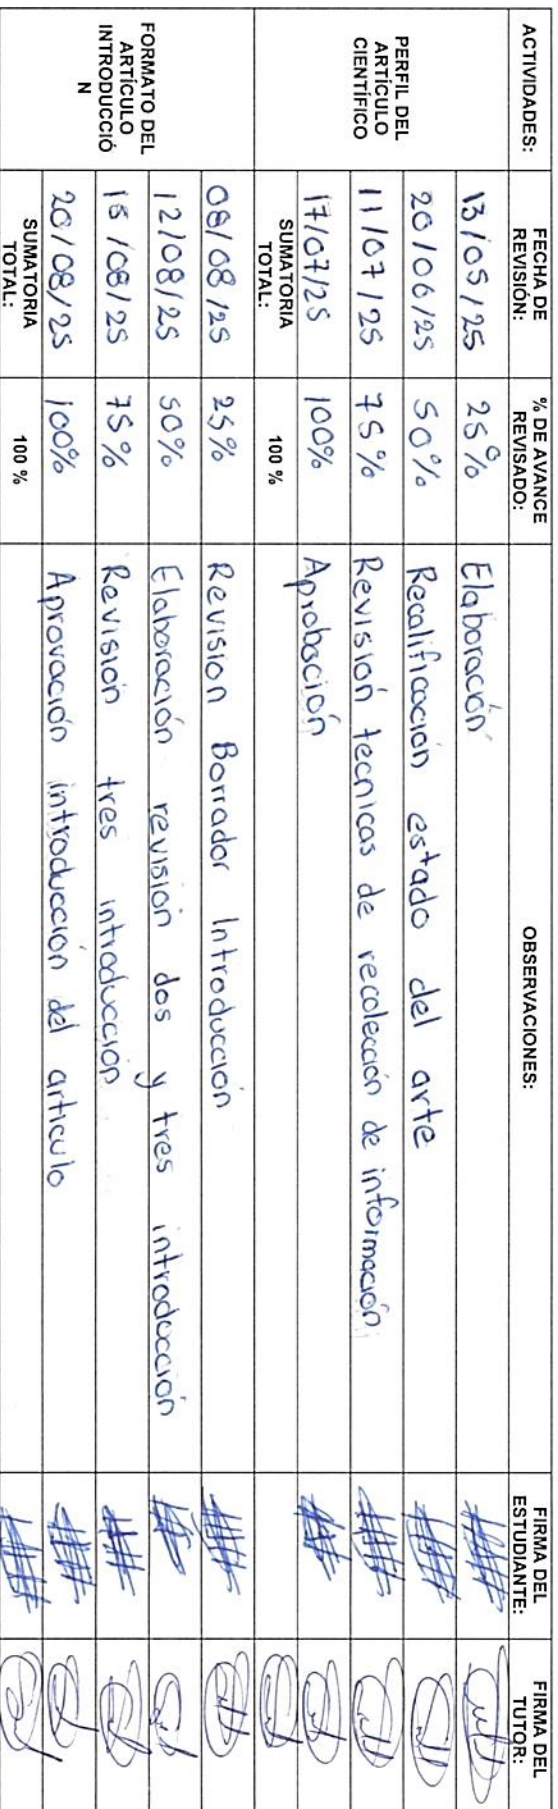 ACTIVIDADES:
FECHA DE
REVISIÓN:
% DE AVANCE
REVISADO:
OBSERVACIONES:
FIRMA DEL
ESTUDIANTE:
FIRMA DEL
TUTOR:
PERFIL DEL
ARTÍCULO
CIENTÍFICO
13/05/25 25% Elaboración
20/06/25 50% Recalificación estado del arte
11/07/25 75% Revisión tecnicas de recolección de información
17/07/25 100% Aprobación
SUMATORIA
TOTAL:
100 %
FORMATO DEL
ARTÍCULO
INTRODUCCIÓ
N
08/08/25 25% Revision Borrador Introducción
12/08/25 50% Elaboración revision dos y tres introducción
/08/25 75% Revisión tres introducción
20/08/25 100% Aprovación introducción del articulo
SUMATORIA
TOTAL:
100 %